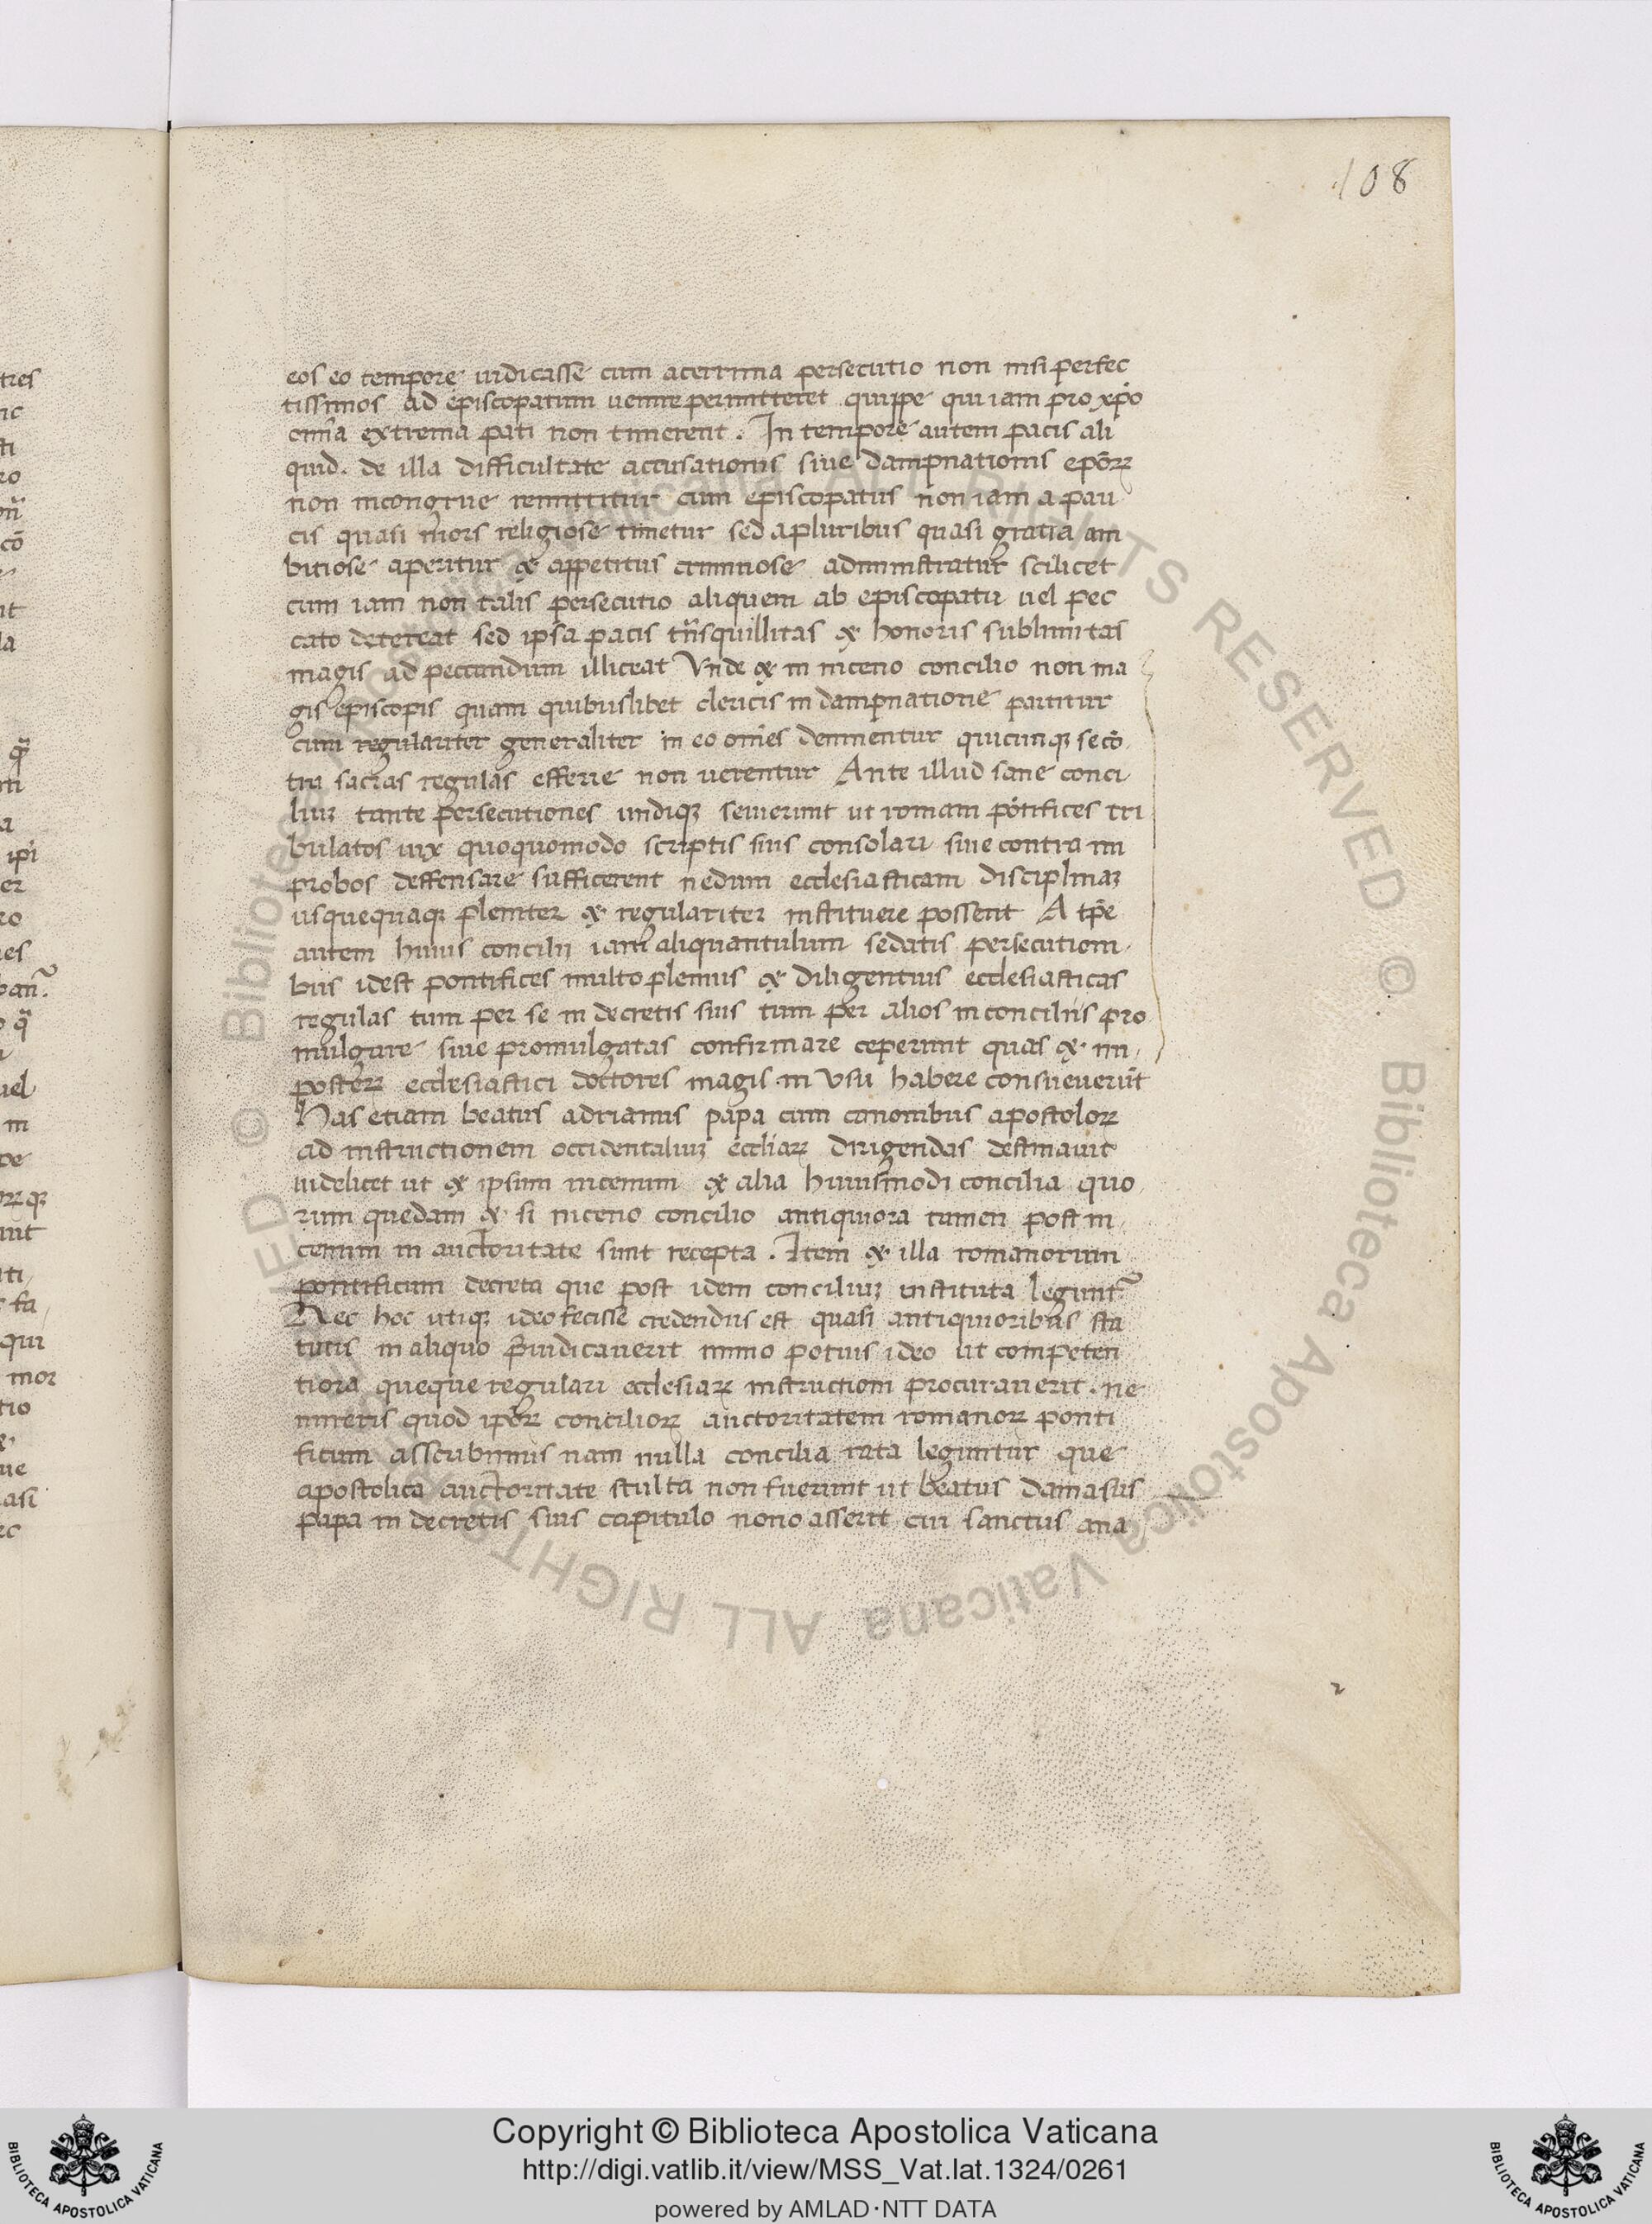 108
eos eo tempore iudicasse cum acerrima persecutio non nisi perfec
tissimos ad episcopatum uenire permitteret quippe qui iam pro xp̄o
om̄ia extrema pati non timerent . In tempore autem pacis ali
quid . de illa difficultate accusationis siue dampnationis ep̄oꝝ
non incongrue remittitur cum episcopatus non iam a pau
cis quasi mors religiose timetur sed a pluribus quasi gratia am
bitiose aperitur & appetitus criminose administratur scilicet
cum iam non talis persecutio aliquem ab episcopatu uel pec
cato deterreat sed ipsa pacis tn̄squillitas & honoris sublimitas
magis ad peccandum illiceat Vnde & in niceno concilio non ma
gis episcopis quam quibuslibet clericis in dampnatione parcitur
cum regulariter generaliter in eo om̄es deninentur quicunqꝫ se cō
tra sacras regulas efferre non uerentur Ante illud sane conci
liuꝫ tante persecutiones undiqꝫ seuierunt ut romani pōtifices tri
bulatos uix quoquomodo scriptis suis consolari siue contra im
probos deffensare sufficerent nedum ecclesiasticam disciplinaꝫ
usquequaqꝫ pleniter & regulariter instituere possent A tp̄e
autem huius concilij iam aliquantulum sedatis persecutioni
bus idest pontifices multo plenius & diligentius ecclesiasticas
regulas tum per se in decretis suis tum per alios in conciliis pro
mulgare siue promulgatas confirmare ceperunt quas &
posteꝝ ecclesiastici doctores magis in usu habere consueuerūt
Has etiam beatus adrianus papa cum canonibus apostoloꝝ
ad instructionem occidentaliuꝫ eccl̄iaꝝ dirigendas destinauit
uidelicet ut & ipsum nicenum & alia huiusmodi concilia quo
rum quedam & si niceno concilio antiquiora tamen post ni
cenum in auctoritate sunt recepta . Item & illa romanorum
pontificum decreta que post idem conciliuꝫ instituta legunt᷑
Nec hoc utiqꝫ ideo fecisse credendus est quasi antiquioribus sta
tutis in aliquo p̄iudicauerit immo potius ideo ut competen
tiora queque regulari ecclesiaꝝ instructioni procurauerit . ne
mireris quod ip̄oꝝ concilioꝝ auctoritatem romanoꝝ ponti
ficum asscribimus nam nulla concilia rata leguntur que
apostolica auctoritate stulta non fuerunt ut beatus damasus
papa in decretis suis capitulo nono asserit cui sanctus ana
Copyright © Biblioteca Apostolica Vaticana
http://digi.vatlib.it/view/MSS_Vat.lat.1324/0261
powered by AMLAD·NTT DATA
BIBLIOTECA APOSTOLICA VATICANA
BIBLIOTECA APOSTOLICA VATICANA
© Biblioteca Apostolica Vaticana ALL RIGHTS RESERVED © Biblioteca Apostolica Vaticana ALL RIGHTS RESERVED